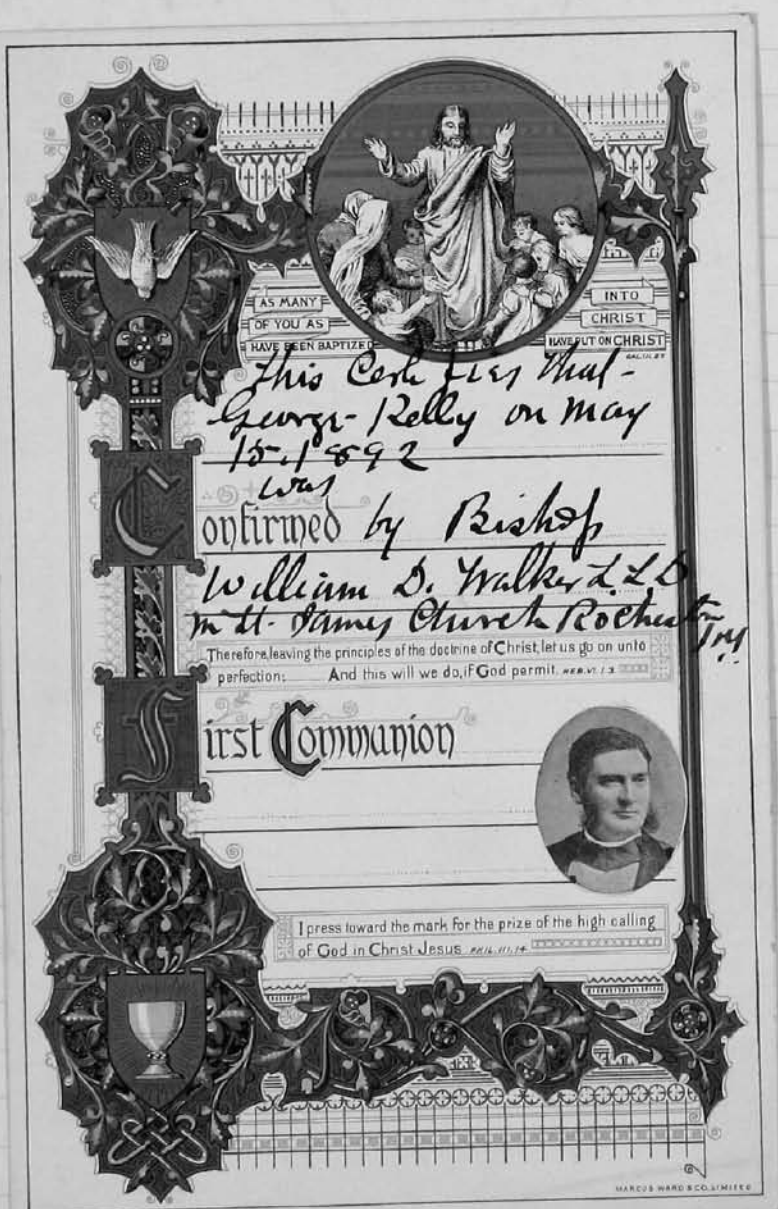 AS MANY
OF YOU AS
HAVE BEEN BAPTIZED
INTO
CHRIST
HAVE PUT ON CHRIST
GAL. III. 27
This Certifies that-
George Kelly on May
15.1892
was
Confirmed by Bishop
William D. Walker L.L.D
in St. James Church Rochester
N.Y.
Therefore, leaving the principles of the doctrine of Christ, let us go on unto
perfection: And this will we do, if God permit. HEB. VI. 1. 3
First Communion
I press toward the mark for the prize of the high calling
of God in Christ Jesus PHIL. III. 14
MARCUS WARD & CO. LIMITED